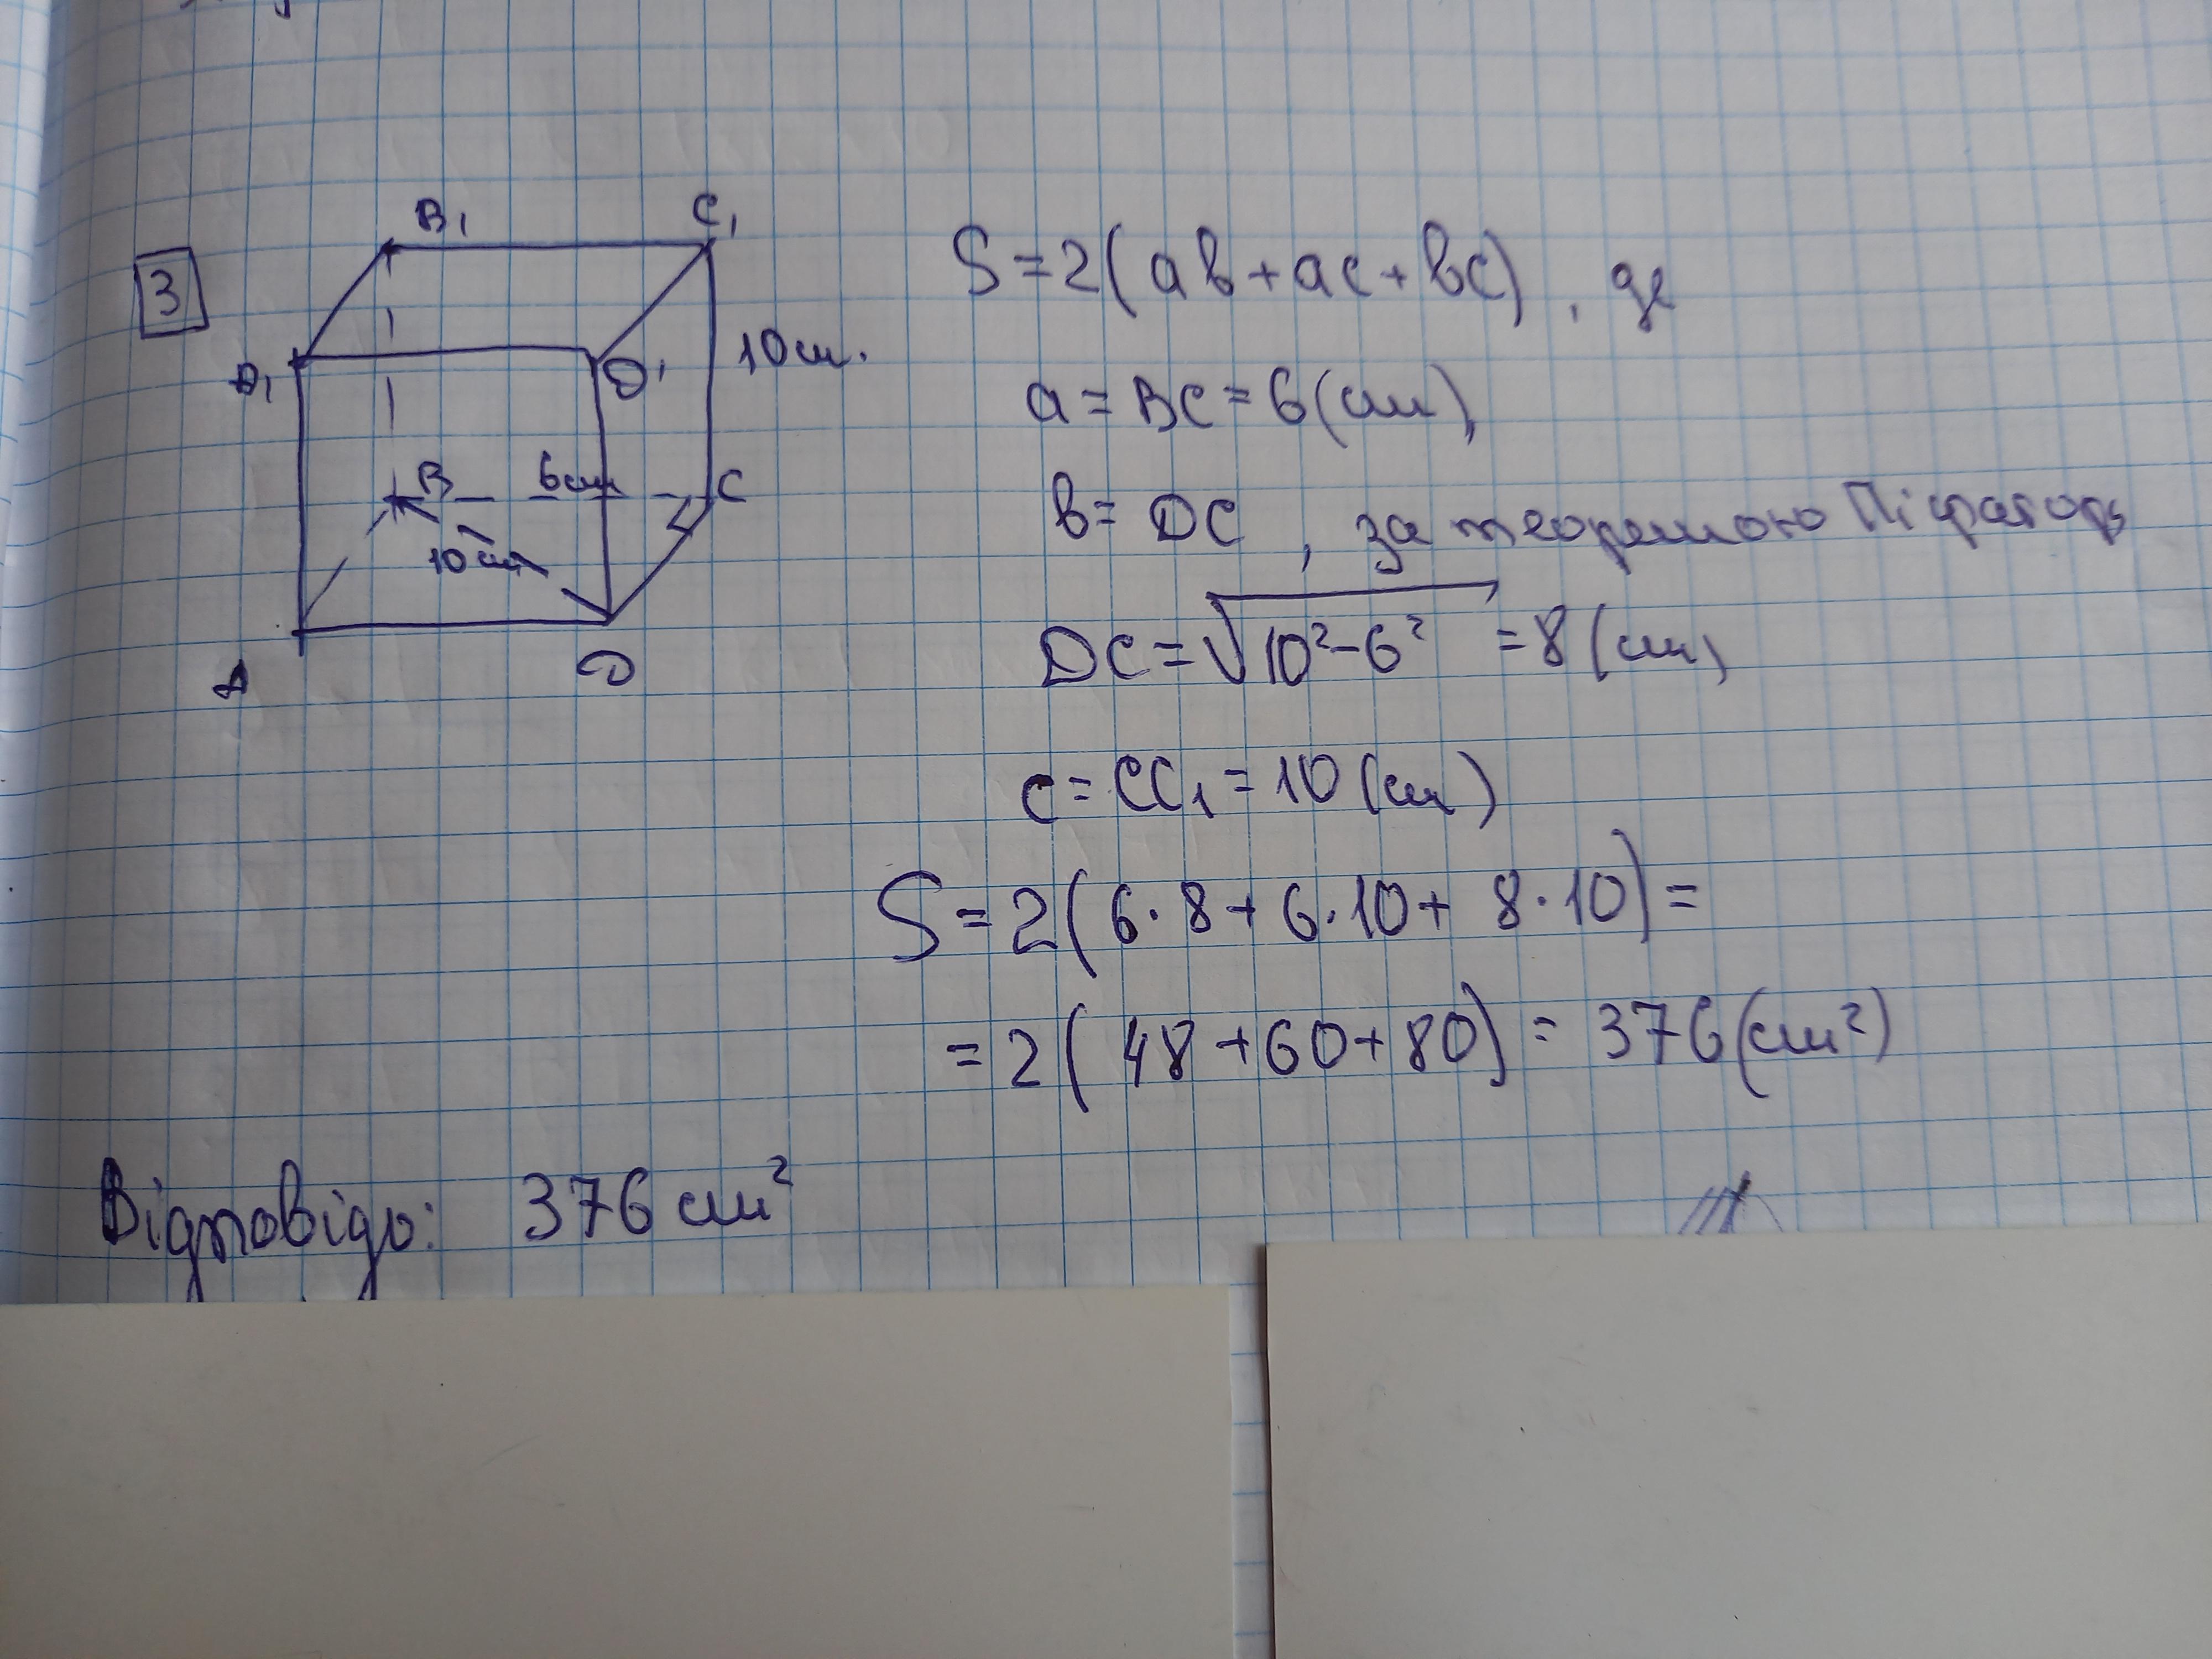 3
B₁ C₁
A₁ D₁ 10 см.
B 6см C
10 см
A D
S = 2(ab + ac + bc), де
a = BC = 6 (см),
b = DC, за теоремою Піфагора
DC = √10² - 6² = 8 (см)
c = CC₁ = 10 (см)
S = 2(6·8 + 6·10 + 8·10) =
= 2(48 + 60 + 80) = 376 (см²)
Відповідь: 376 см²